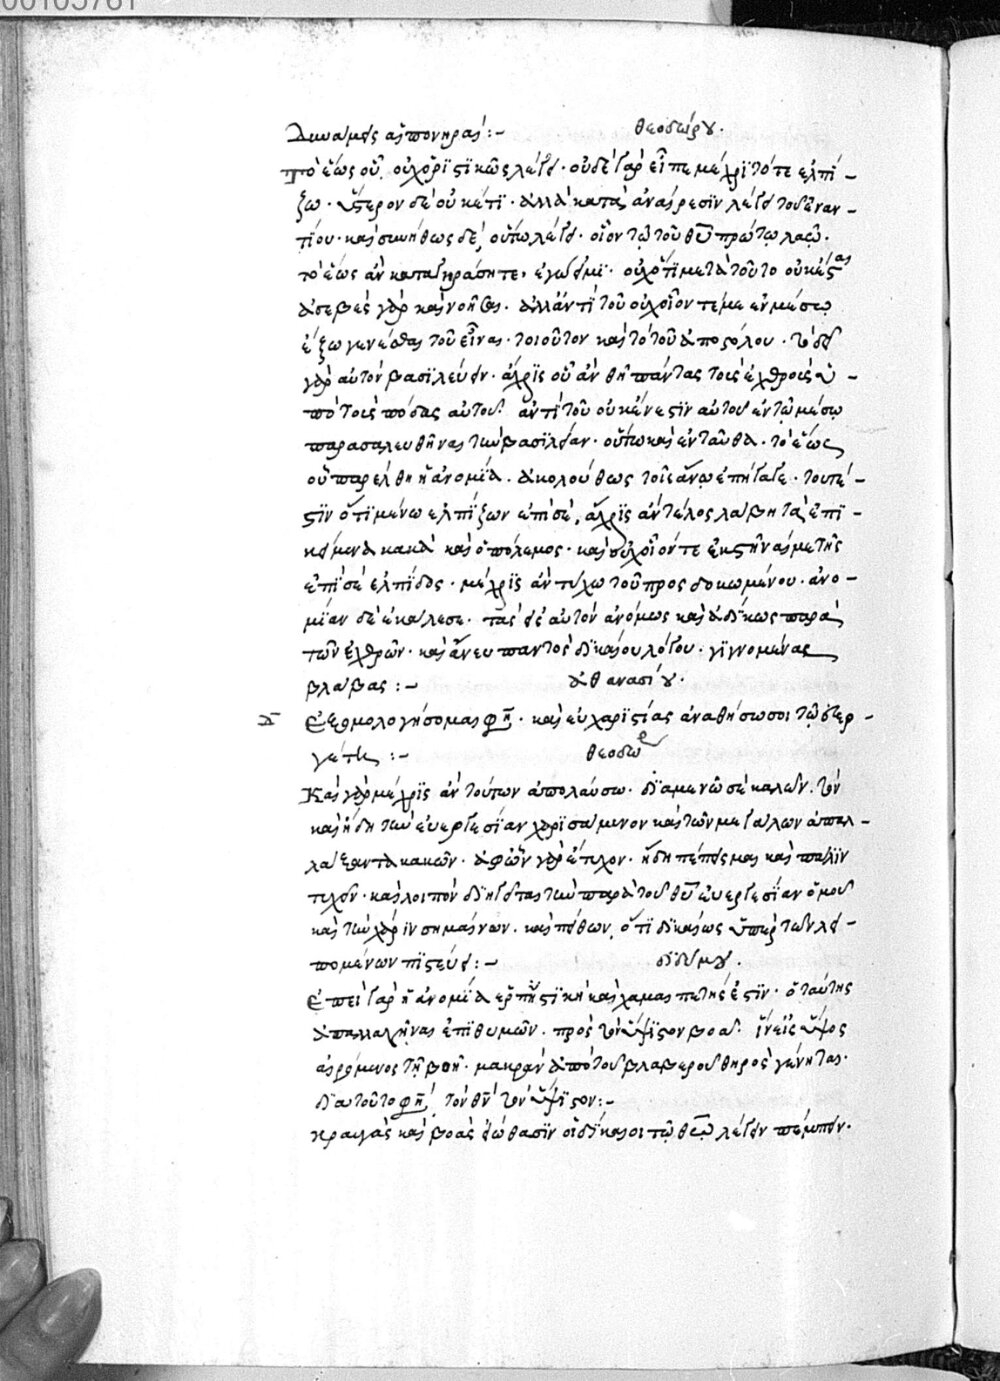 00105761
δυνάμεις αἱ πονηραί:- θεοδώρου.
Τὸ ἕως οὗ, οὐχ ὁριστικῶς λέγει· οὐδὲ γὰρ εἶπε μέχρι τότε ἐλπί-
ζω· ὕστερον δὲ οὐκέτι· ἀλλὰ κατὰ ἀναίρεσιν λέγει τοῦ ἐναν-
τίου· καὶ συνήθως δὲ, οὕτω λέγει· οἷον τῷ τοῦ θυ πρώτῳ λαῷ·
τὸ ἕως ἂν καταγηράσητε, ἐγώ εἰμι· οὐχ ὅτι μετὰ τοῦτο οὐκ ἔσται
ἀσεβὲς γὰρ καὶ νοῆσαι· ἀλλ' ἀντὶ τοῦ οὐχ οἷόν τέ με ἐν μέσῳ
ἔξω γενέσθαι τοῦ εἶναι· τοιοῦτον καὶ τὸ τοῦ ἀποστόλου· δεῖ
γὰρ αὐτὸν βασιλεύειν· ἄχρις οὗ ἂν θῇ πάντας τοὺς ἐχθροὺς ὑ-
πὸ τοὺς πόδας αὐτοῦ· ἀντὶ τοῦ οὐκ ἔνεστιν αὐτοῦ ἐν τῷ μέσῳ
παρασαλευθῆναι τὴν βασιλείαν· οὕτω καὶ ἐνταῦθα· τὸ ἕως
οὗ παρέλθῃ ἡ ἀνομία· ἀκολούθως τοῖς ἄνω ἐπήγαγε· τουτέ-
στιν ὅτι μένω ἐλπίζων ἐπὶ σὲ, ἄχρις ἂν τέλος λάβῃ τὰ ἐπι-
κείμενα κακὰ καὶ ὁ πόλεμος· καὶ οὐχ οἷόν τε ἐκστῆναί με τῆς
ἐπὶ σὲ ἐλπίδος· μέχρις ἂν τύχω τοῦ προσδοκωμένου· ἀνο-
μίαν δὲ ἐκάλεσε· τὰς εἰς αὐτὸν ἀνόμως καὶ ἀδίκως παρὰ
τῶν ἐχθρῶν· καὶ ἄνευ παντὸς δικαίου λόγου· γιγνομένας
βλάβας:- ἀθανασίου·
Ἐξομολογήσομαι φη· καὶ εὐχαριστίας ἀναθήσω σοι τῷ εὐερ-
γέτῃ:- θεοδώρου
Καὶ γὰρ μέχρις ἂν τούτων ἀπολαύσω· διαμενῶ σὲ καλεῖν· τὸν
καὶ ἤδη τὴν εὐεργεσίαν χαρισάμενον καὶ τῶν μεγάλων ἀπαλ-
λάξαντα κακῶν· ἀφ' ὧν γὰρ ἔτυχον· ἤδη πέπεισμαι καὶ πάλιν
τυχεῖν· καὶ λοιπὸν διηγεῖται τὴν παρὰ τοῦ θυ εὐεργεσίαν ὁμοῦ
καὶ τὴν χάριν σημαίνων· καὶ πείθων, ὅτι δικαίως ὑπὲρ τῶν λει-
πομένων πιστεύει:- διδύμου·
Ἐπεὶ γὰρ ἡ ἀνομία ἑρπηστικὴ καὶ χαμαιπετής ἐστιν· ὁ ταύτης
ἀπαλλαγῆναι ἐπιθυμῶν· πρὸς τὸν ὕψιστον βοᾷ· ἵν' εἰς ὕψος
αἰρόμενος τῇ βοῇ· μακρὰν ἀπὸ τοῦ βλαβεροῦ θηρὸς γένηται·
διὰ τοῦτο φη, τὸν θν τὸν ὕψιστον:-
κραυγὰς καὶ βοὰς εἰώθασιν οἱ δίκαιοι τῷ θεῷ λέγειν πέμπειν·